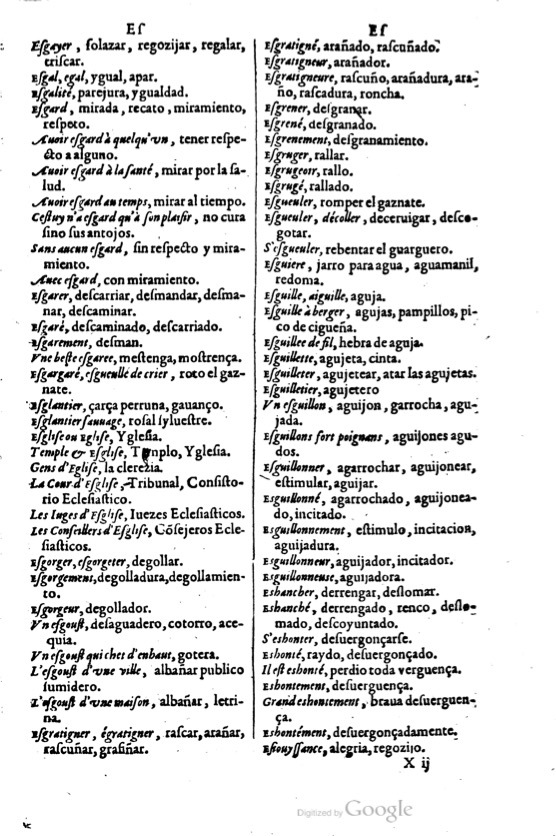 Eſ
Eſgayer, folazar, regozijar, regalar,
triſcar.
Eſgal, egal, ygual, apar.
Eſgalité, parejura, ygualdad.
Eſgard, mirada, recato, miramiento,
reſpeto.
Auoir eſgard à quelqu'vn, tener reſpe-
cto a alguno.
Auoir eſgard à la ſanté, mirar por la ſa-
lud.
Auoir eſgard au temps, mirar al tiempo.
Ceſtuy n'a eſgard qu'à ſon plaiſir, no cura
ſino ſus antojos.
Sans aucun eſgard, ſin reſpecto y mira-
miento.
Auec eſgard, con miramiento.
Eſgarer, deſcarriar, deſmandar, deſma-
nar, deſcaminar.
Eſgaré, deſcaminado, deſcarriado.
Eſgarement, deſman.
Vne beſte eſgaree, meſtenga, moſtrença.
Eſgargaré, eſgueullé de crier, roto el gaz-
nate.
Eſglantier, çarça perruna, gauanço.
Eſglantier ſauuage, roſal ſylueſtre.
Eſgliſe ou Egliſe, Ygleſia.
Temple & Eſgliſe, Templo, Ygleſia.
Gens d'Egliſe, la clerezia.
La Cour d'Eſgliſe, Tribunal, Conſiſto-
rio Eccleſiaſtico.
Les Iuges d'Eſgliſe, Iuezes Ecleſiaſticos.
Les Conſeillers d'Eſgliſe, Cōſejeros Ecle-
ſiaſticos.
Eſgorger, eſgorgeter, degollar.
Eſgorgement, degolladura, degollamien-
to.
Eſgorgeur, degollador.
Vn eſgouſt, deſaguadero, cotorro, ace-
quia.
Vn eſgouſt qui chet d'enhaut, gotera.
L'eſgouſt d'vne ville, albañar publico
ſumidero.
L'eſgouſt d'vne maiſon, albañar, letri-
na.
Eſgratigner, égratigner, raſcar, arañar,
raſcuñar, grafiñar.
Eſ
Eſgratigné, arañado, raſcuñado.
Eſgratigneur, arañador.
Eſgratigneure, raſcuño, arañadura, ara-
ño, raſcadura, roncha.
Eſgrener, deſgranar.
Eſgrené, deſgranado.
Eſgrenement, deſgranamiento.
Eſgruger, rallar.
Eſgrugeoir, rallo.
Eſgrugé, rallado.
Eſgueuler, romper el gaznate.
Eſgueuler, décoller, deceruigar, deſco-
gotar.
S'eſgueuler, rebentar el guarguero.
Eſguiere, jarro para agua, aguamanil,
redoma.
Eſguille, aiguille, aguja.
Eſguille à berger, agujas, pampillos, pi-
co de cigueña.
Eſguillee de fil, hebra de aguja.
Eſguillette, agujeta, cinta.
Eſguilleter, agujetear, atar las agujetas.
Eſguilletier, agujetero
Vn eſguillon, aguijon, garrocha, agu-
jada.
Eſguillons fort poignans, aguijones agu-
dos.
Eſguillonner, agarrochar, aguijonear,
eſtimular, aguijar.
Esguillonné, agarrochado, aguijonea-
do, incitado.
Esguillonnement, eſtimulo, incitacion,
aguijadura.
Esguillonneur, aguijador, incitador.
Esguillonneuſe, aguijadora.
Eshancher, derrengar, deſlomar.
Eshanché, derrengado, renco, deſlo-
mado, deſcoyuntado.
S'eshonter, deſuergonçarſe.
Eshonté, raydo, deſuergonçado.
Il eſt eshonté, perdio toda verguença.
Eshontement, deſuerguença.
Grand eshontement, braua deſuerguen-
ça.
Eshontément, deſuergonçadamente.
Eſiouyſſance, alegria, regozijo.
X ij
Digitized by Google